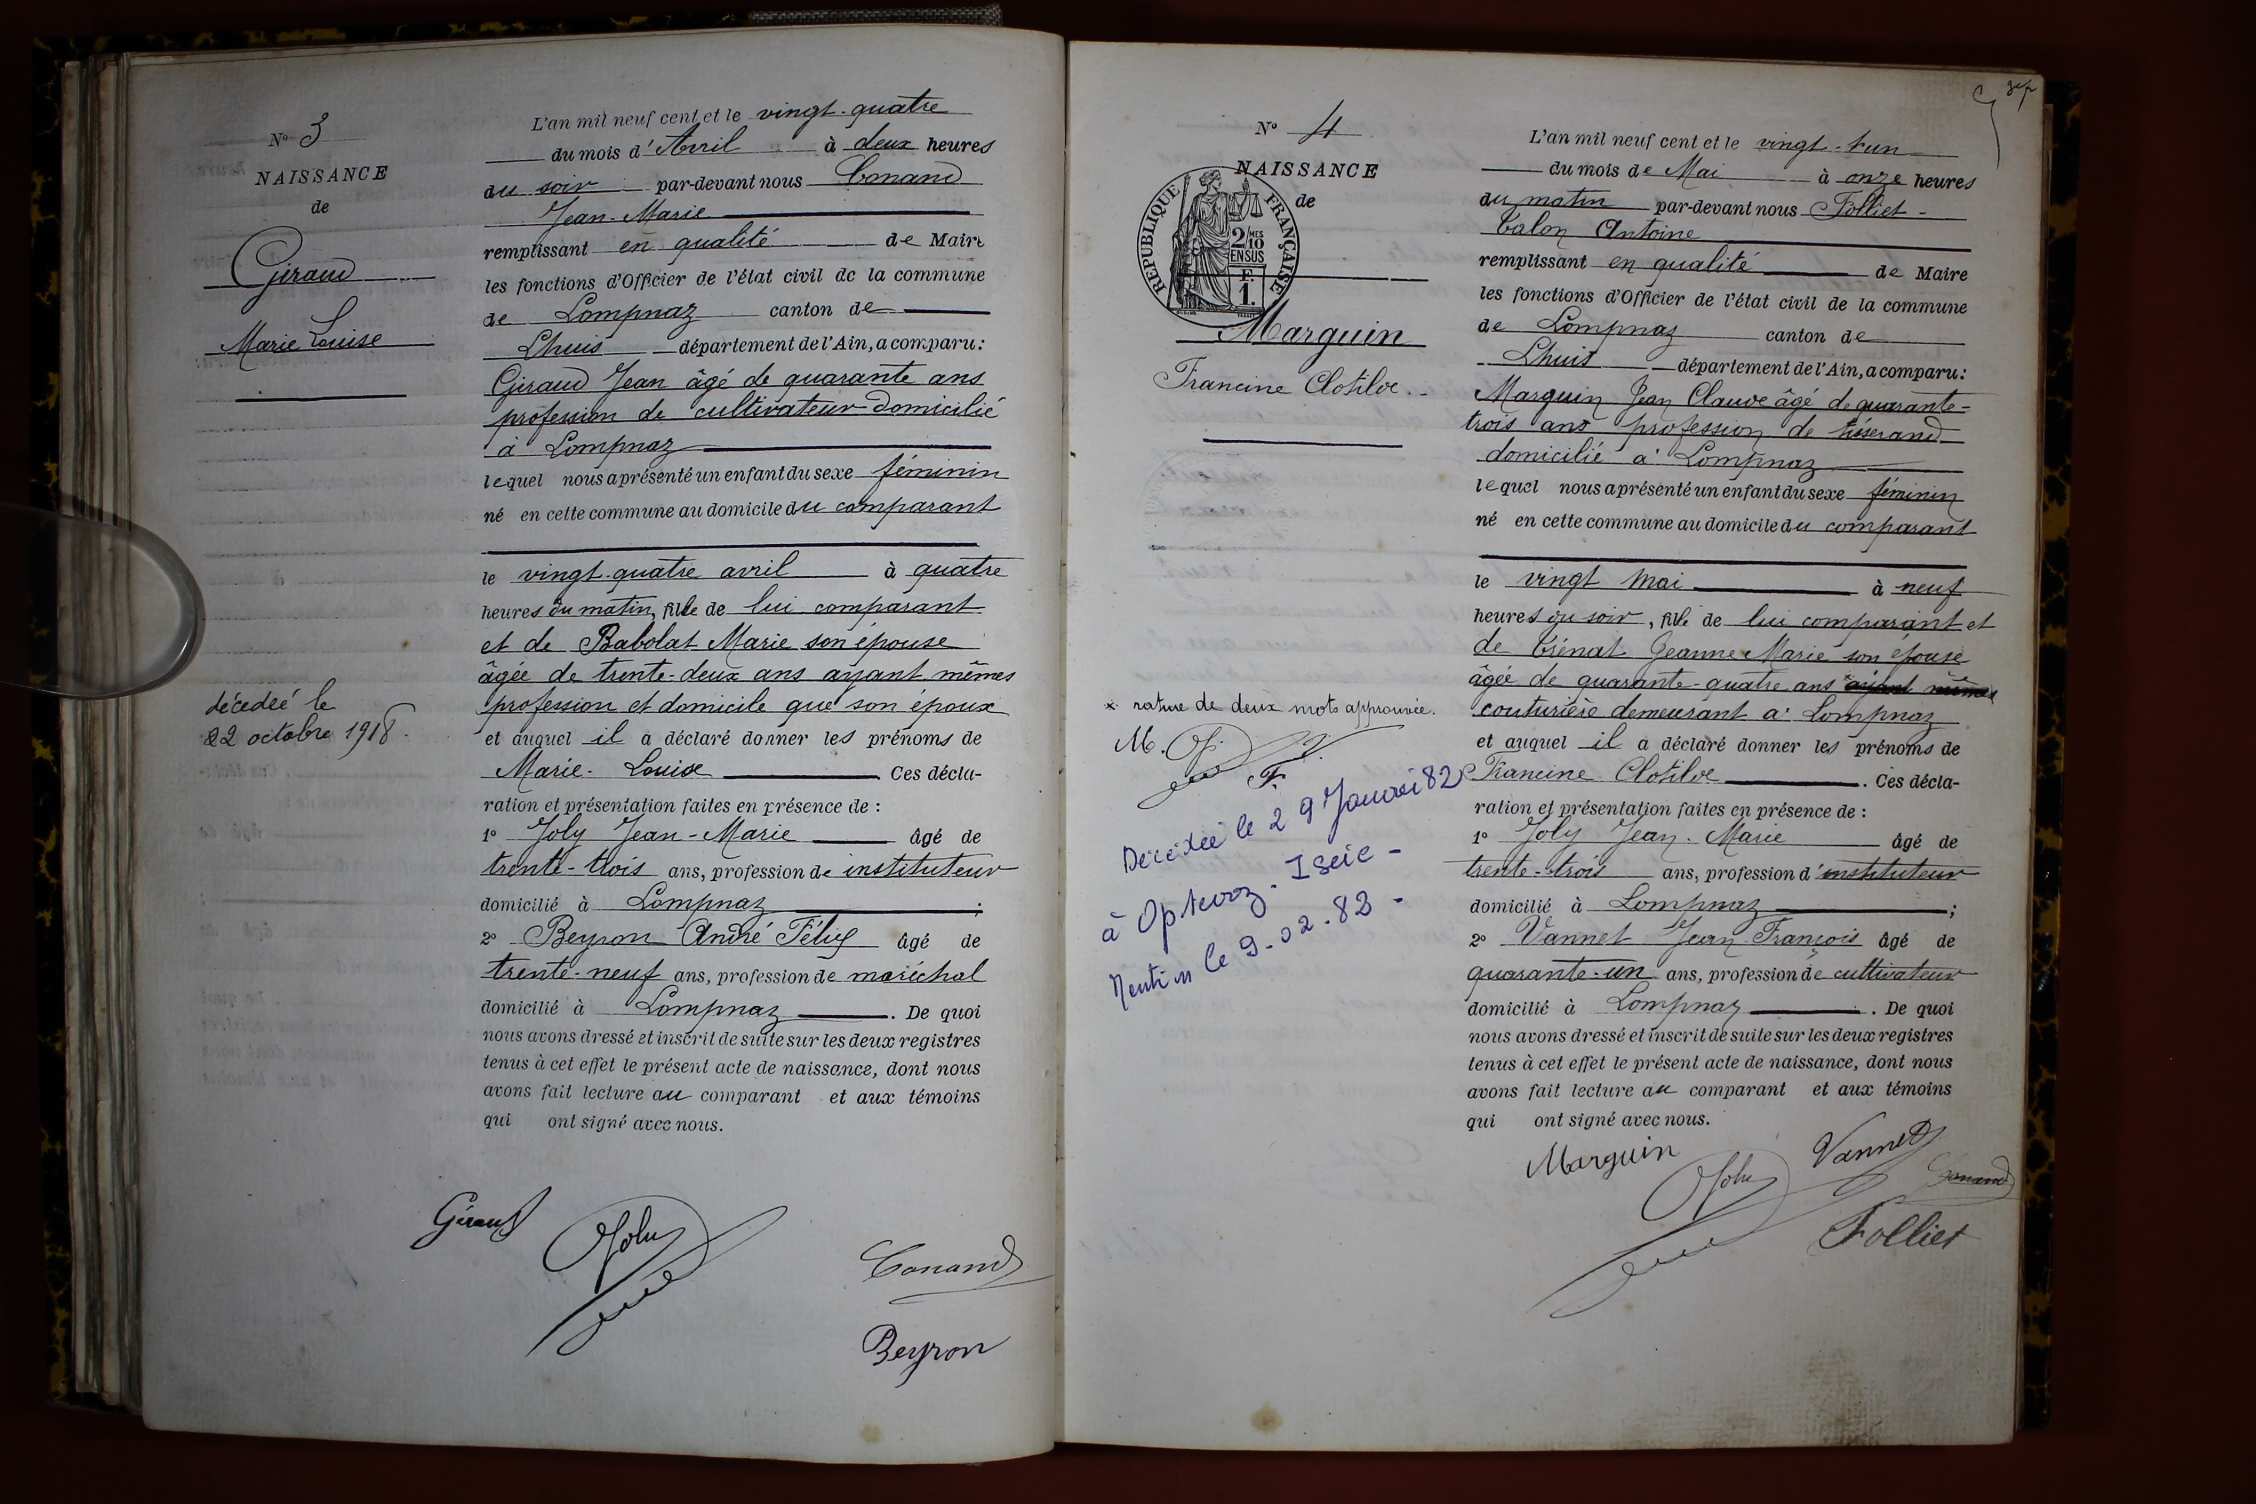 N° 3
NAISSANCE
de
Giraud
Marie Louise
décedeé le
22 octobre 1918.
L'an mil neuf cent et le vingt-quatre
du mois d'Avril à deux heures
du soir par-devant nous Conand
Jean-Marie
remplissant en qualité de Maire
les fonctions d'Officier de l'état civil de la commune
de Lompnaz canton de
Lhuis département de l'Ain, a comparu:
Giraud Jean âgé de quarante ans
profession de cultivateur domicilié
à Lompnaz
lequel nous a présenté un enfant du sexe féminin
né en cette commune au domicile du comparant
le vingt-quatre avril à quatre
heures du matin, fille de lui comparant
et de Babolat Marie son épouse
âgée de trente-deux ans ayant mêmes
profession et domicile que son époux
et auquel il a déclaré donner les prénoms de
Marie-Louise. Ces décla-
ration et présentation faites en présence de :
1° Joly Jean-Marie âgé de
trente-trois ans, profession de instituteur
domicilié à Lompnaz ;
2° Beyron André Félix âgé de
trente-neuf ans, profession de maréchal
domicilié à Lompnaz. De quoi
nous avons dressé et inscrit de suite sur les deux registres
tenus à cet effet le présent acte de naissance, dont nous
avons fait lecture au comparant et aux témoins
qui ont signé avec nous.
Giraud
Joly
Conand
Beyron
N° 4
NAISSANCE
de
REPUBLIQUE FRANÇAISE
2/10 MES
EN SUS
F.
1.
Marguin
Francine Clotilde
x rature de deux mots approuvée.
M. J. V.
F.
Décédée le 29 Janvei 82
à Optevoz - Isère -
Mention le 9-02-82 -
L'an mil neuf cent et le vingt-t-un
du mois de Mai à onze heures
du matin par-devant nous Folliet-
Talon Antoine
remplissant en qualité de Maire
les fonctions d'Officier de l'état civil de la commune
de Lompnaz canton de
Lhuis département de l'Ain, a comparu:
Marguin Jean Claude âgé de quarante-
trois ans profession de tisserand
domicilié à Lompnaz
lequel nous a présenté un enfant du sexe féminin
né en cette commune au domicile du comparant
le vingt Mai à neuf
heures du soir, fille de lui comparant et
de Trénat Jeanne Marie son épouse
âgée de quarante-quatre ans x ayant mêmes
couturière demeurant à Lompnaz
et auquel il a déclaré donner les prénoms de
Francine Clotilde. Ces décla-
ration et présentation faites en présence de :
1° Joly Jean-Marie âgé de
trente-trois ans, profession d'instituteur
domicilié à Lompnaz ;
2° Vannet Jean-François âgé de
quarante-un ans, profession de cultivateur
domicilié à Lompnaz. De quoi
nous avons dressé et inscrit de suite sur les deux registres
tenus à cet effet le présent acte de naissance, dont nous
avons fait lecture au comparant et aux témoins
qui ont signé avec nous.
Marguin
Joly
Vannet
Conand
Folliet